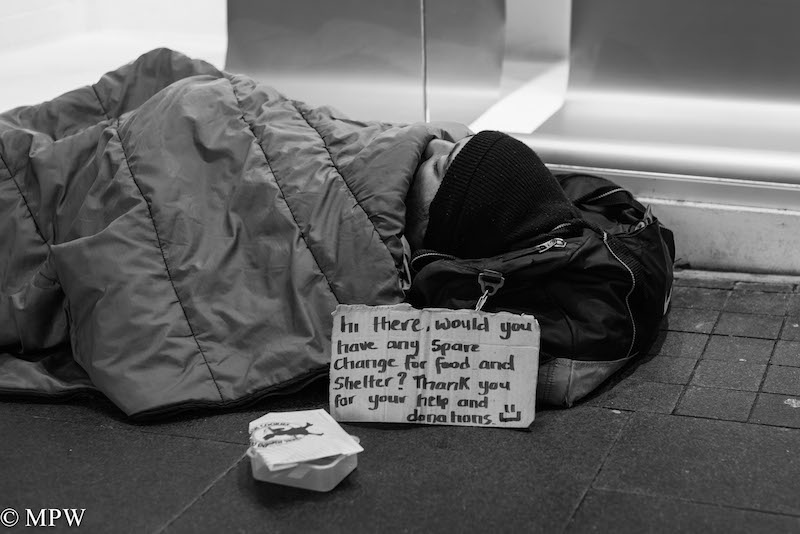 Hi There, would you
have any spare
change for food and
Shelter? Thank you
for your help and
donations.
© MPW